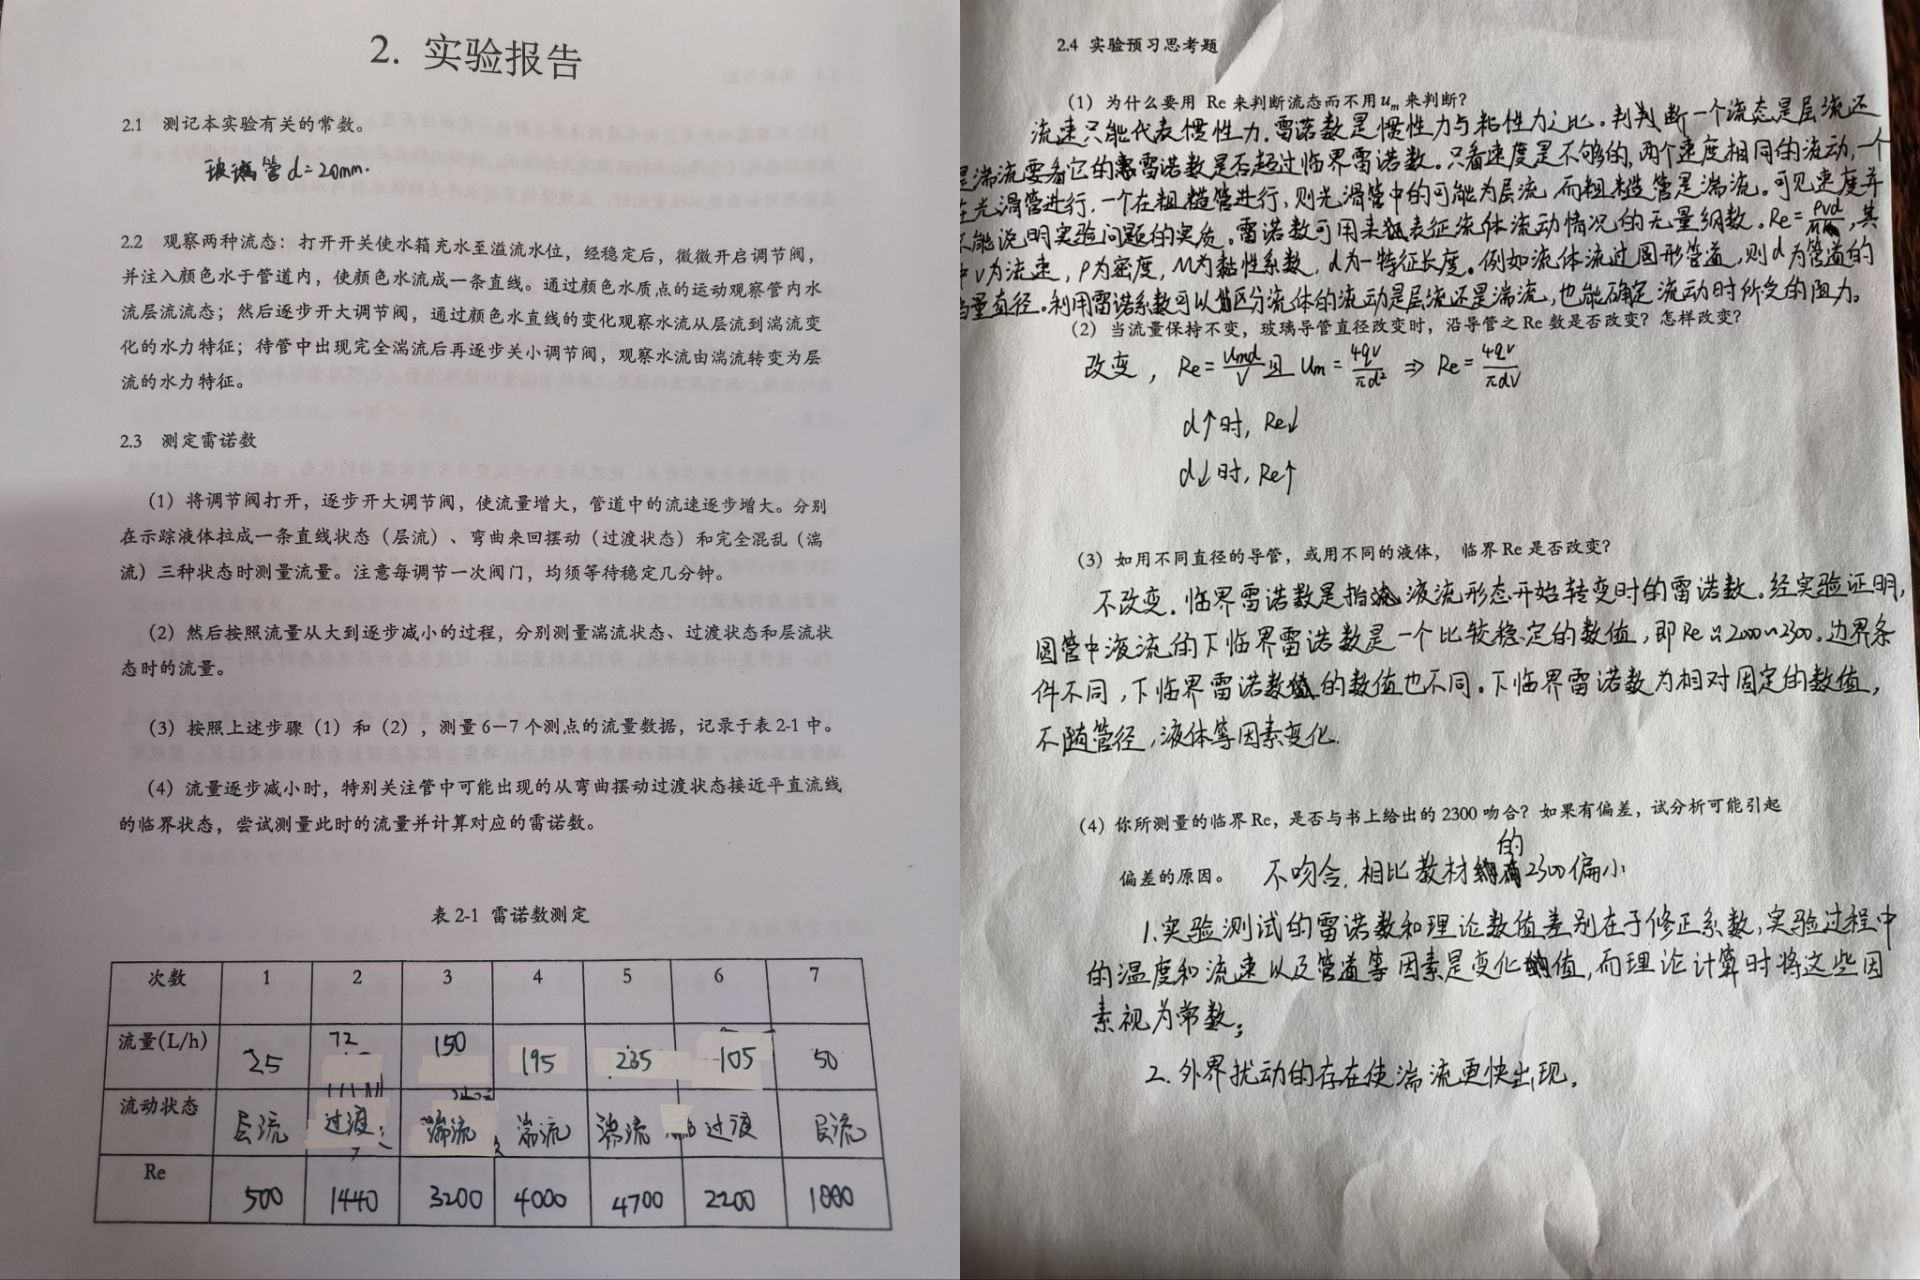 2. 实验报告
2.1 测记本实验有关的常数。
玻璃管d=20mm.
2.2 观察两种流态：打开开关使水箱充水至溢流水位，经稳定后，微微开启调节阀，
并注入颜色水于管道内，使颜色水流成一条直线。通过颜色水质点的运动观察管内水
流层流流态；然后逐步开大调节阀，通过颜色水直线的变化观察水流从层流到湍流变
化的水力特征；待管中出现完全湍流后再逐步关小调节阀，观察水流由湍流转变为层
流的水力特征。
2.3 测定雷诺数
（1）将调节阀打开，逐步开大调节阀，使流量增大，管道中的流速逐步增大。分别
在示踪液体拉成一条直线状态（层流）、弯曲来回摆动（过渡状态）和完全混乱（湍
流）三种状态时测量流量。注意每调节一次阀门，均须等待稳定几分钟。
（2）然后按照流量从大到逐步减小的过程，分别测量湍流状态、过渡状态和层流状
态时的流量。
（3）按照上述步骤（1）和（2），测量6－7个测点的流量数据，记录于表2-1中。
（4）流量逐步减小时，特别关注管中可能出现的从弯曲摆动过渡状态接近平直流线
的临界状态，尝试测量此时的流量并计算对应的雷诺数。
表2-1 雷诺数测定
次数 1 2 3 4 5 6 7
流量(L/h) 25 72 150 195 235 105 50
流动状态 层流 过渡 湍流 湍流 湍流 过渡 层流
Re 500 1440 3200 4000 4700 2200 1000
2.4 实验预习思考题
（1）为什么要用 Re 来判断流态而不用um来判断？
流速只能代表惯性力.雷诺数是惯性力与粘性力之比.判判断一个流态是层流还
是湍流要看它的雷诺数是否超过临界雷诺数。只看速度是不够的,两个速度相同的流动,一个
在光滑管进行,一个在粗糙管进行,则光滑管中的可能为层流,而粗糙管是湍流。可见速度并
不能说明实验问题的实质。雷诺数可用来表征流体流动情况的无量纲数。Re=ρvd/M,其
中v为流速,ρ为密度,M为黏性系数,d为一特征长度。例如流体流过圆形管道,则d为管道的
当量直径。利用雷诺系数可以区分流体的流动是层流还是湍流,也能确定流动时所受的阻力。
（2）当流量保持不变，玻璃导管直径改变时，沿导管之Re数是否改变？怎样改变？
改变, Re=Umd/V且Um=4qv/πd² ⇒ Re=4qv/πdV
d↑时, Re↓
d↓时, Re↑
（3）如用不同直径的导管，或用不同的液体， 临界Re是否改变？
不改变.临界雷诺数是指液流形态开始转变时的雷诺数.经实验证明,
圆管中液流的下临界雷诺数是一个比较稳定的数值,即Re≈2000~2300.边界条
件不同,下临界雷诺数的数值也不同。下临界雷诺数为相对固定的数值,
不随管径,液体等因素变化.
（4）你所测量的临界Re，是否与书上给出的2300吻合？如果有偏差，试分析可能引起
偏差的原因。 不吻合,相比教材的2300偏小
1.实验测试的雷诺数和理论数值差别在于修正系数,实验过程中
的温度和流速以及管道等因素是变化值,而理论计算时将这些因
素视为常数;
2.外界扰动的存在使湍流更快出现.